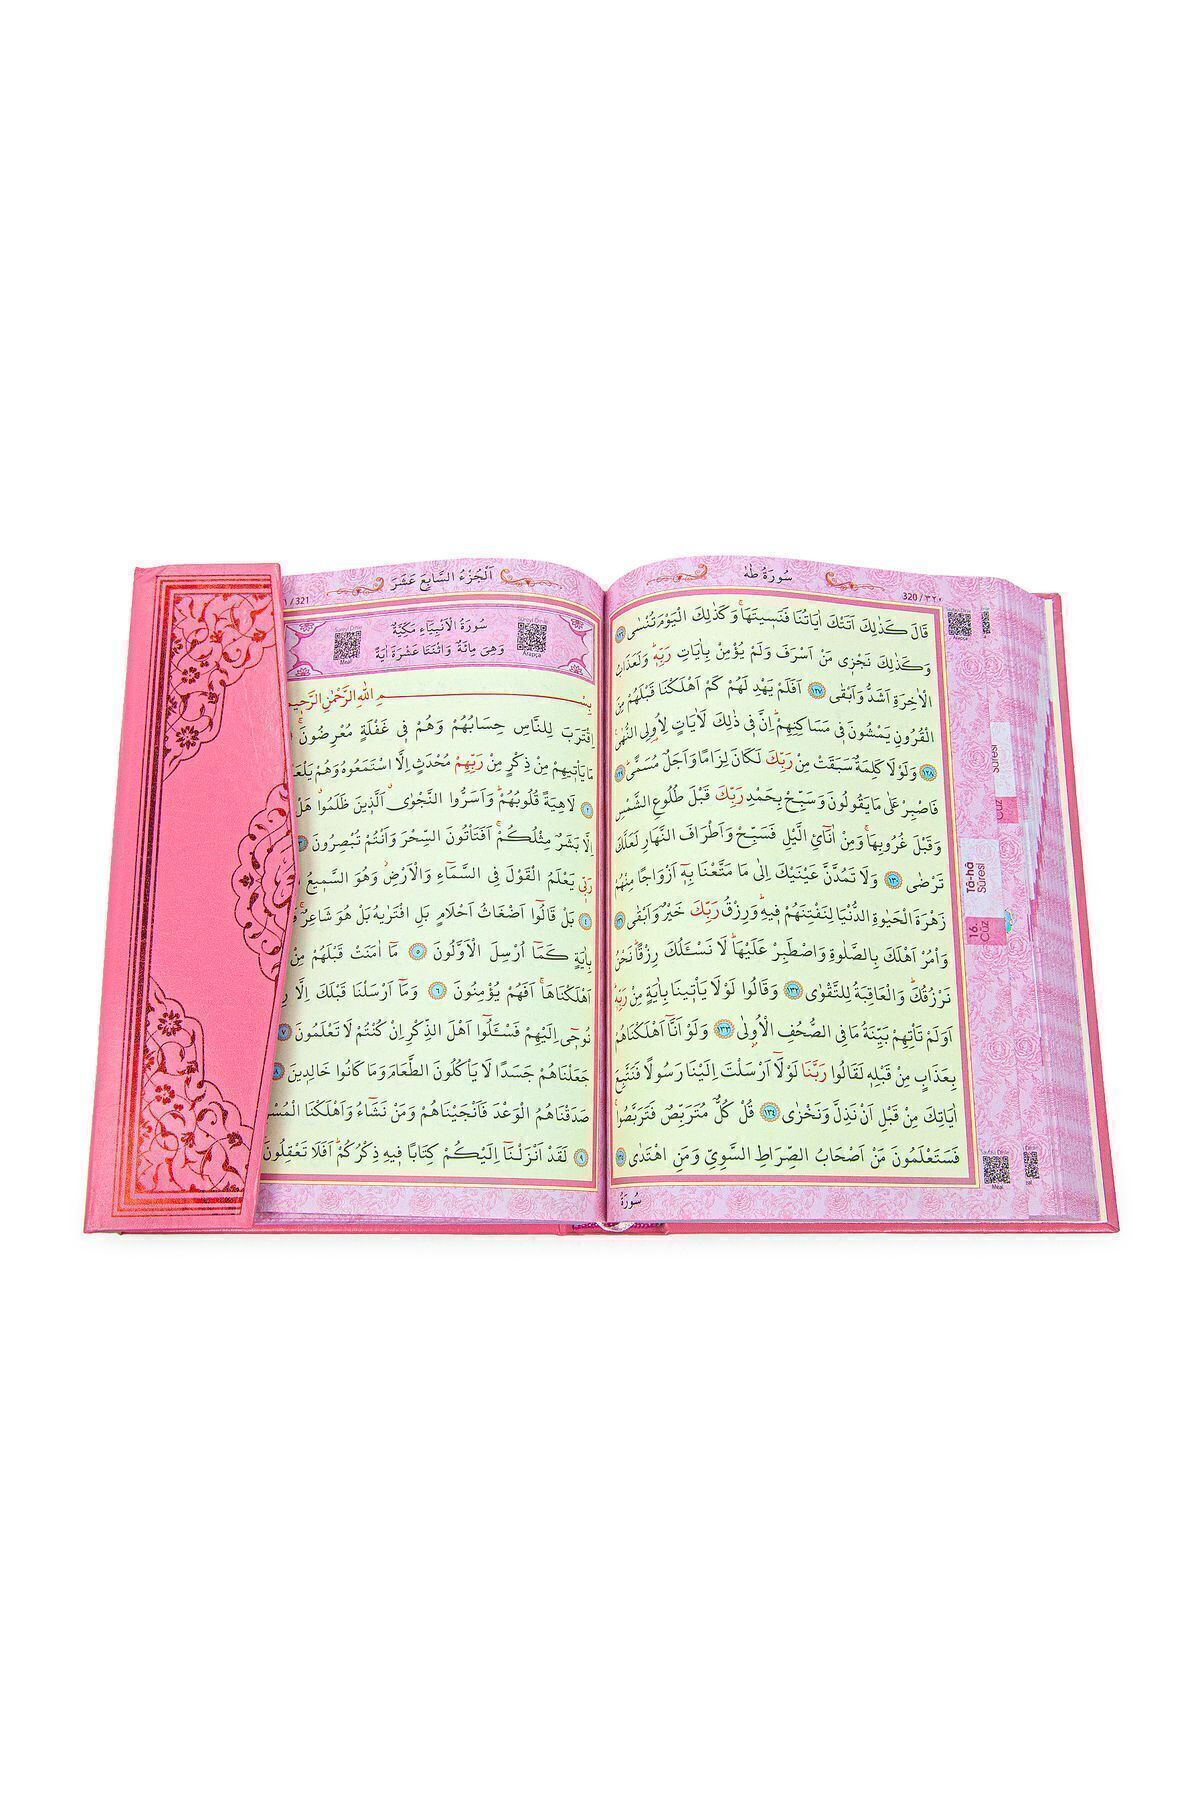 سُورَةُ طٰهٰ
320 / ٣٢٠
قَالَ كَذٰلِكَ اَتَتْكَ اٰيَاتُنَا فَنَسٖيتَهَاۚ وَكَذٰلِكَ الْيَوْمَ تُنْسٰى ﴿١٢٦﴾
وَكَذٰلِكَ نَجْزٖى مَنْ اَسْرَفَ وَلَمْ يُؤْمِنْ بِاٰيَاتِ رَبِّهٖؕ وَلَعَذَابُ
الْاٰخِرَةِ اَشَدُّ وَاَبْقٰى ﴿١٢٧﴾ اَفَلَمْ يَهْدِ لَهُمْ كَمْ اَهْلَكْنَا قَبْلَهُمْ مِنَ
الْقُرُونِ يَمْشُونَ فٖى مَسَاكِنِهِمْؕ اِنَّ فٖى ذٰلِكَ لَاٰيَاتٍ لِاُولِى النُّهٰى
﴿١٢٨﴾ وَلَوْلَا كَلِمَةٌ سَبَقَتْ مِنْ رَبِّكَ لَكَانَ لِزَامًا وَاَجَلٌ مُسَمًّىؕ ﴿١٢٩﴾
فَاصْبِرْ عَلٰى مَا يَقُولُونَ وَسَبِّحْ بِحَمْدِ رَبِّكَ قَبْلَ طُلُوعِ الشَّمْسِ
وَقَبْلَ غُرُوبِهَاۚ وَمِنْ اٰنَآئِ الَّيْلِ فَسَبِّحْ وَاَطْرَافَ النَّهَارِ لَعَلَّكَ
تَرْضٰى ﴿١٣٠﴾ وَلَا تَمُدَّنَّ عَيْنَيْكَ اِلٰى مَا مَتَّعْنَا بِهٖٓ اَزْوَاجًا مِنْهُمْ
زَهْرَةَ الْحَيٰوةِ الدُّنْيَا لِنَفْتِنَهُمْ فٖيهِؕ وَرِزْقُ رَبِّكَ خَيْرٌ وَاَبْقٰى ﴿١٣١﴾
وَاْمُرْ اَهْلَكَ بِالصَّلٰوةِ وَاصْطَبِرْ عَلَيْهَاؕ لَا نَسْـَٔلُكَ رِزْقًاؕ نَحْنُ
نَرْزُقُكَؕ وَالْعَاقِبَةُ لِلتَّقْوٰى ﴿١٣٢﴾ وَقَالُوا لَوْلَا يَاْتٖينَا بِاٰيَةٍ مِنْ رَبِّهٖؕ
اَوَلَمْ تَاْتِهِمْ بَيِّنَةُ مَا فِى الصُّحُفِ الْاُولٰى ﴿١٣٣﴾ وَلَوْ اَنَّٓا اَهْلَكْنَاهُمْ
بِعَذَابٍ مِنْ قَبْلِهٖ لَقَالُوا رَبَّنَا لَوْلَٓا اَرْسَلْتَ اِلَيْنَا رَسُولًا فَنَتَّبِعَ
اٰيَاتِكَ مِنْ قَبْلِ اَنْ نَذِلَّ وَنَخْزٰى ﴿١٣٤﴾ قُلْ كُلٌّ مُتَرَبِّصٌ فَتَرَبَّصُواۚ
فَسَتَعْلَمُونَ مَنْ اَصْحَابُ الصِّرَاطِ السَّوِىِّ وَمَنِ اهْتَدٰى ﴿١٣٥﴾
سُورَةُ
Arapça
Sûresi
Cüz
Tâ-hâ
Sûresi
16.
Cüz
Meal
اَلْجُزْءُ السَّابِعَ عَشَرَ
/ 321
سُورَةُ الْاَنْبِيَاءِ مَكِّيَّةٌ
وَهِىَ مِائَةٌ وَاثْنَتَا عَشْرَةَ اٰيَةً
Arapça
Meal
بِسْمِ اللّٰهِ الرَّحْمٰنِ الرَّحٖيمِ
اِقْتَرَبَ لِلنَّاسِ حِسَابُهُمْ وَهُمْ فٖى غَفْلَةٍ مُعْرِضُونَۚ
مَا يَاْتٖيهِمْ مِنْ ذِكْرٍ مِنْ رَبِّهِمْ مُحْدَثٍ اِلَّا اسْتَمَعُوهُ وَهُمْ
﴿٢﴾ لَاهِيَةً قُلُوبُهُمْؕ وَاَسَرُّوا النَّجْوٰىۗ اَلَّذٖينَ ظَلَمُواۗ هَلْ
اِلَّا بَشَرٌ مِثْلُكُمْۚ اَفَتَاْتُونَ السِّحْرَ وَاَنْتُمْ تُبْصِرُونَ ﴿٣﴾
رَبّٖى يَعْلَمُ الْقَوْلَ فِى السَّمَٓاءِ وَالْاَرْضِؗ وَهُوَ السَّمٖيعُ
﴿٤﴾ بَلْ قَالُٓوا اَضْغَاثُ اَحْلَامٍ بَلِ افْتَرٰيهُ بَلْ هُوَ شَاعِرٌۚ
بِاٰيَةٍ كَمَٓا اُرْسِلَ الْاَوَّلُونَ ﴿٥﴾ مَٓا اٰمَنَتْ قَبْلَهُمْ مِنْ
اَهْلَكْنَاهَاۚ اَفَهُمْ يُؤْمِنُونَ ﴿٦﴾ وَمَٓا اَرْسَلْنَا قَبْلَكَ اِلَّا
نُوحٖٓى اِلَيْهِمْ فَسْـَٔلُٓوا اَهْلَ الذِّكْرِ اِنْ كُنْتُمْ لَا تَعْلَمُونَ ﴿٧﴾
جَعَلْنَاهُمْ جَسَدًا لَا يَاْكُلُونَ الطَّعَامَ وَمَا كَانُوا خَالِدٖينَ ﴿٨﴾
صَدَقْنَاهُمُ الْوَعْدَ فَاَنْجَيْنَاهُمْ وَمَنْ نَشَٓاءُ وَاَهْلَكْنَا
﴿٩﴾ لَقَدْ اَنْزَلْنَٓا اِلَيْكُمْ كِتَابًا فٖيهِ ذِكْرُكُمْؕ اَفَلَا تَعْقِلُونَ